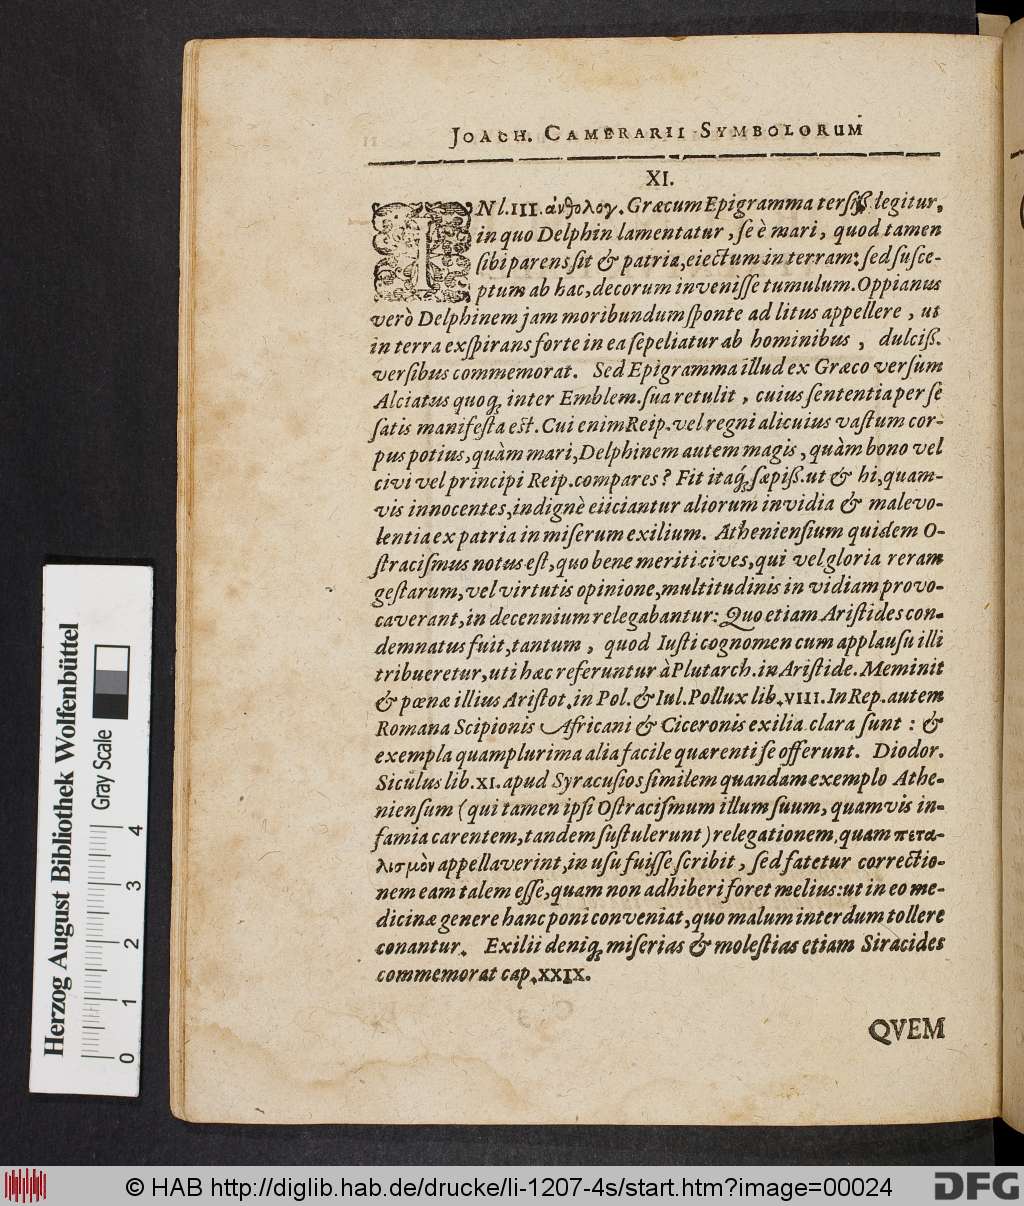 JOACH. CAMERARII SYMBOLORUM
XI.
INl.III.ἀνθολογ. Græcum Epigramma tersiß. legitur,
in quo Delphin lamentatur, se è mari, quod tamen
sibi parens sit & patria, eiectum in terram: sed susce-
ptum ab hac, decorum invenisse tumulum. Oppianus
verò Delphinem jam moribundum sponte ad litus appellere, ut
in terra exspirans forte in ea sepeliatur ab hominibus, dulciß.
versibus commemorat. Sed Epigramma illud ex Græco versum
Alciatus quoq; inter Emblem. sua retulit, cuius sententia per se
satis manifesta est. Cui enim Reip. vel regni alicuius vastum cor-
pus potius, quàm mari, Delphinem autem magis, quàm bono vel
civi vel principi Reip. compares? Fit itaq́; sæpiß. ut & hi, quam-
vis innocentes, indignè eiiciantur aliorum invidia & malevo-
lentia ex patria in miserum exilium. Atheniensium quidem O-
stracismus notus est, quo bene meriti cives, qui vel gloria rerum
gestarum, vel virtutis opinione, multitudinis in vidiam provo-
caverant, in decennium relegabantur: Quo etiam Aristides con-
demnatus fuit, tantum, quod Iusti cognomen cum applausu illi
tribueretur, uti hæc referuntur à Plutarch. in Aristide. Meminit
& pœnæ illius Aristot. in Pol. & Iul. Pollux lib. VIII. In Rep. autem
Romana Scipionis Africani & Ciceronis exilia clara sunt: &
exempla quamplurima alia facile quærenti se offerunt. Diodor.
Siculus lib. XI. apud Syracusios similem quandam exemplo Athe-
niensum (qui tamen ipsi Ostracismum illum suum, quamvis in-
famia carentem, tandem sustulerunt) relegationem, quam πετα-
λισμὸν appellaverint, in usu fuisse scribit, sed fatetur correctio-
nem eam talem esse, quam non adhiberi foret melius: ut in eo me-
dicinæ genere hanc poni conveniat, quo malum interdum tollere
conantur. Exilii deniq; miserias & molestias etiam Siracides
commemorat cap. XXIX.
QVEM
Herzog August Bibliothek Wolfenbüttel
Gray Scale
0 1 2 3 4
© HAB http://diglib.hab.de/drucke/li-1207-4s/start.htm?image=00024
DFG